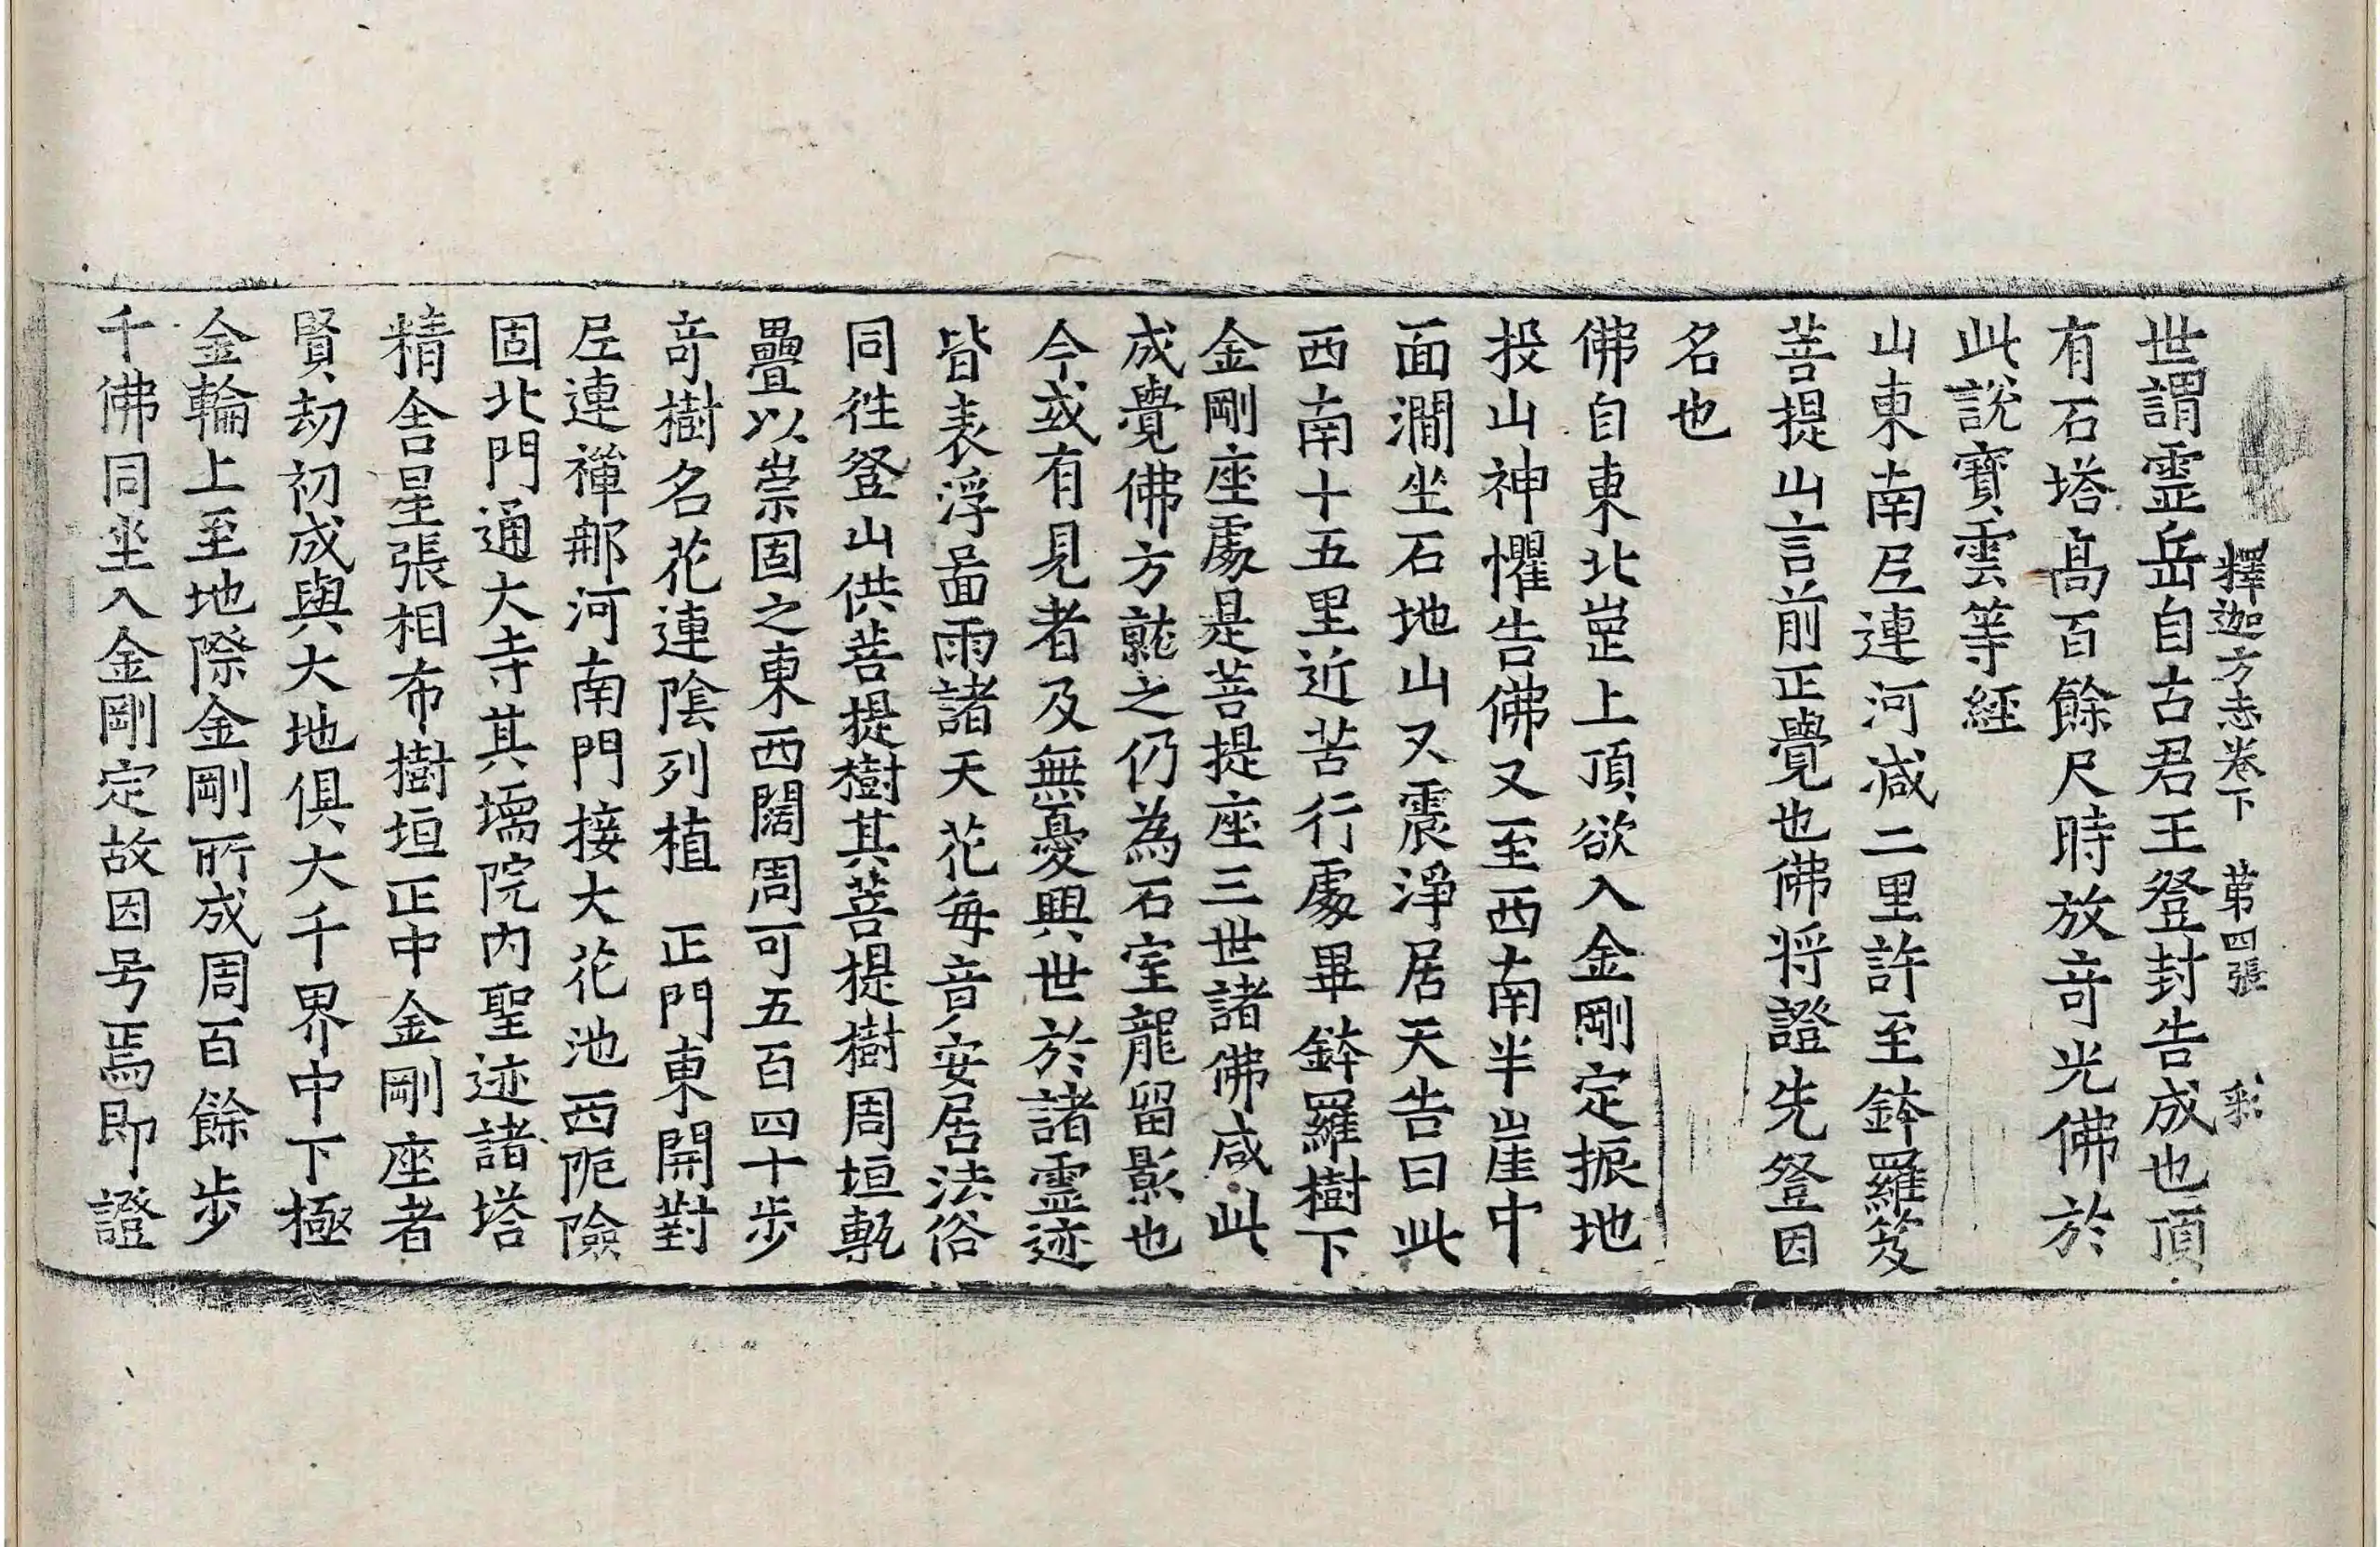 釋迦方志卷下 第四張 彩
世謂霊岳自古君王登封告成也頂
有石塔高百餘尺時放竒光佛於
此說寶雲等經
山東南𡰱連河减二里許至鉢羅笈
菩提山言前正覺也佛将證先登因
名也
佛自東北崑上頂欲入金剛定振地
投山神懼告佛又至西南半崖中
面澗坐石地山又震淨居天告曰此
西南十五里近苦行處畢鉢羅樹下
金剛座處是菩提座三世諸佛咸此
成覺佛方就之仍為石室龍留影也
今或有見者及無憂興世於諸霊迹
皆表浮啚雨諸天花每音安居法俗
同往登山供菩提樹其菩提樹周垣甎
疊以崇固之東西闊周可五百四十步
竒樹名花連陰列植 正門東開對
𡰱連禪郍河南門接大花池西阨險
固北門通大寺其壖院内聖迹諸塔
精舍星張相布樹垣正中金剛座者
賢劫初成與大地俱大千界中下極
金輪上至地際金剛所成周百餘步
千佛同坐入金剛定故因号焉即證